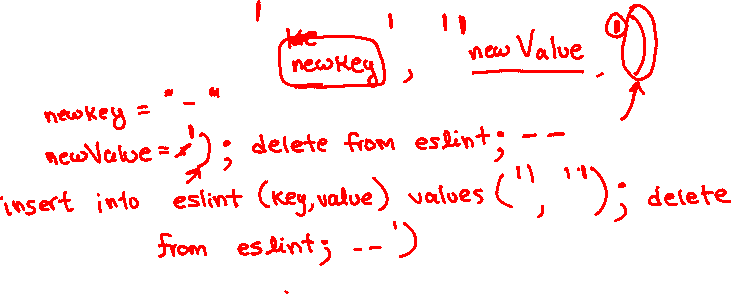 ' newKey ', '' newValue.
newkey = "-"
newValue = '); delete from eslint; --
insert into eslint (key, value) values ('', '''); delete
from eslint; --')